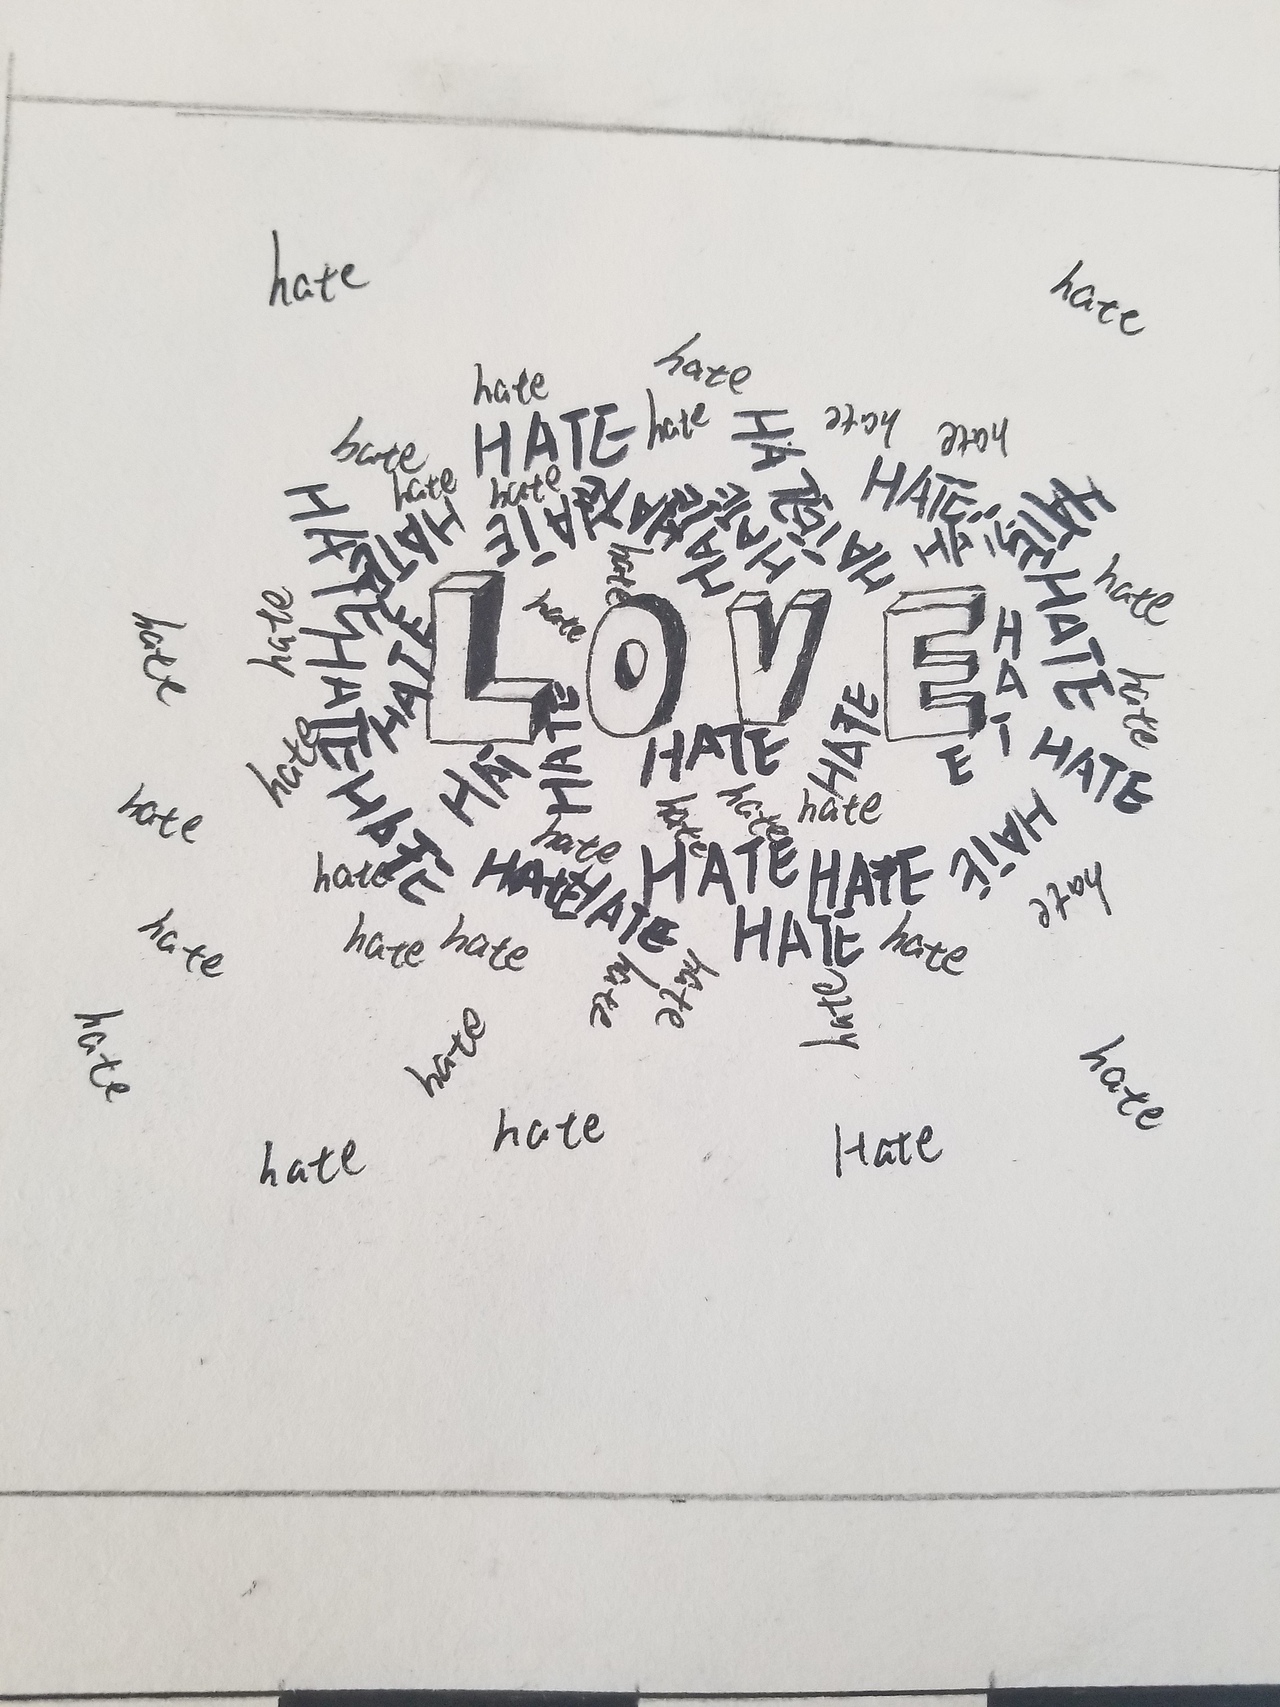 hate
hate
hate
hate
hate
HATE
hate
HATE
hate
hate
hate
hate
HATE
HATE
hate
HATE
HATE
HATE
HATE
HATE
hate
hate
LOVE
hate
hate
hate
HATE
HATE
HATE
HATE
HATE
hate
HATE
HATE
HATE
HATE
hate
hate
HATE
HATE
hate
hate
hate
hate
hate
HATE
hate
HATE
HATE
HATE
HATE
HATE
hate
HATE
hate
hate
hate
hate
hate
hate
hate
hate
hate
hate
hate
hate
Hate